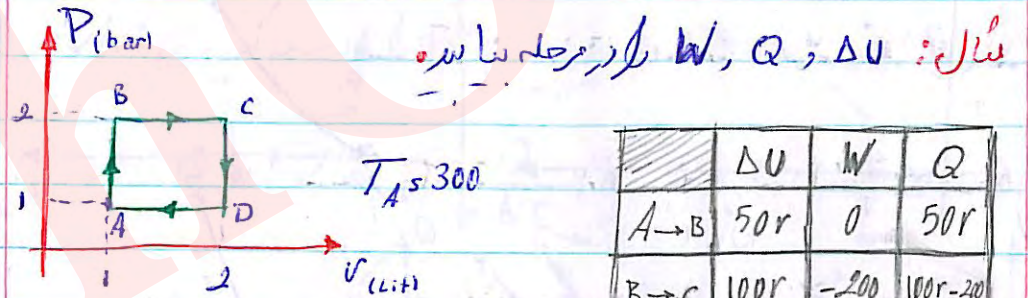 مثال: ΔU , Q , W را در هر مرحله بیابید.
P(bar)
2
B
C
1
A
D
1
2
V(Lit)
T_A = 300
ΔU W Q
A→B 50r 0 50r
B→C 100r -200 100r-200